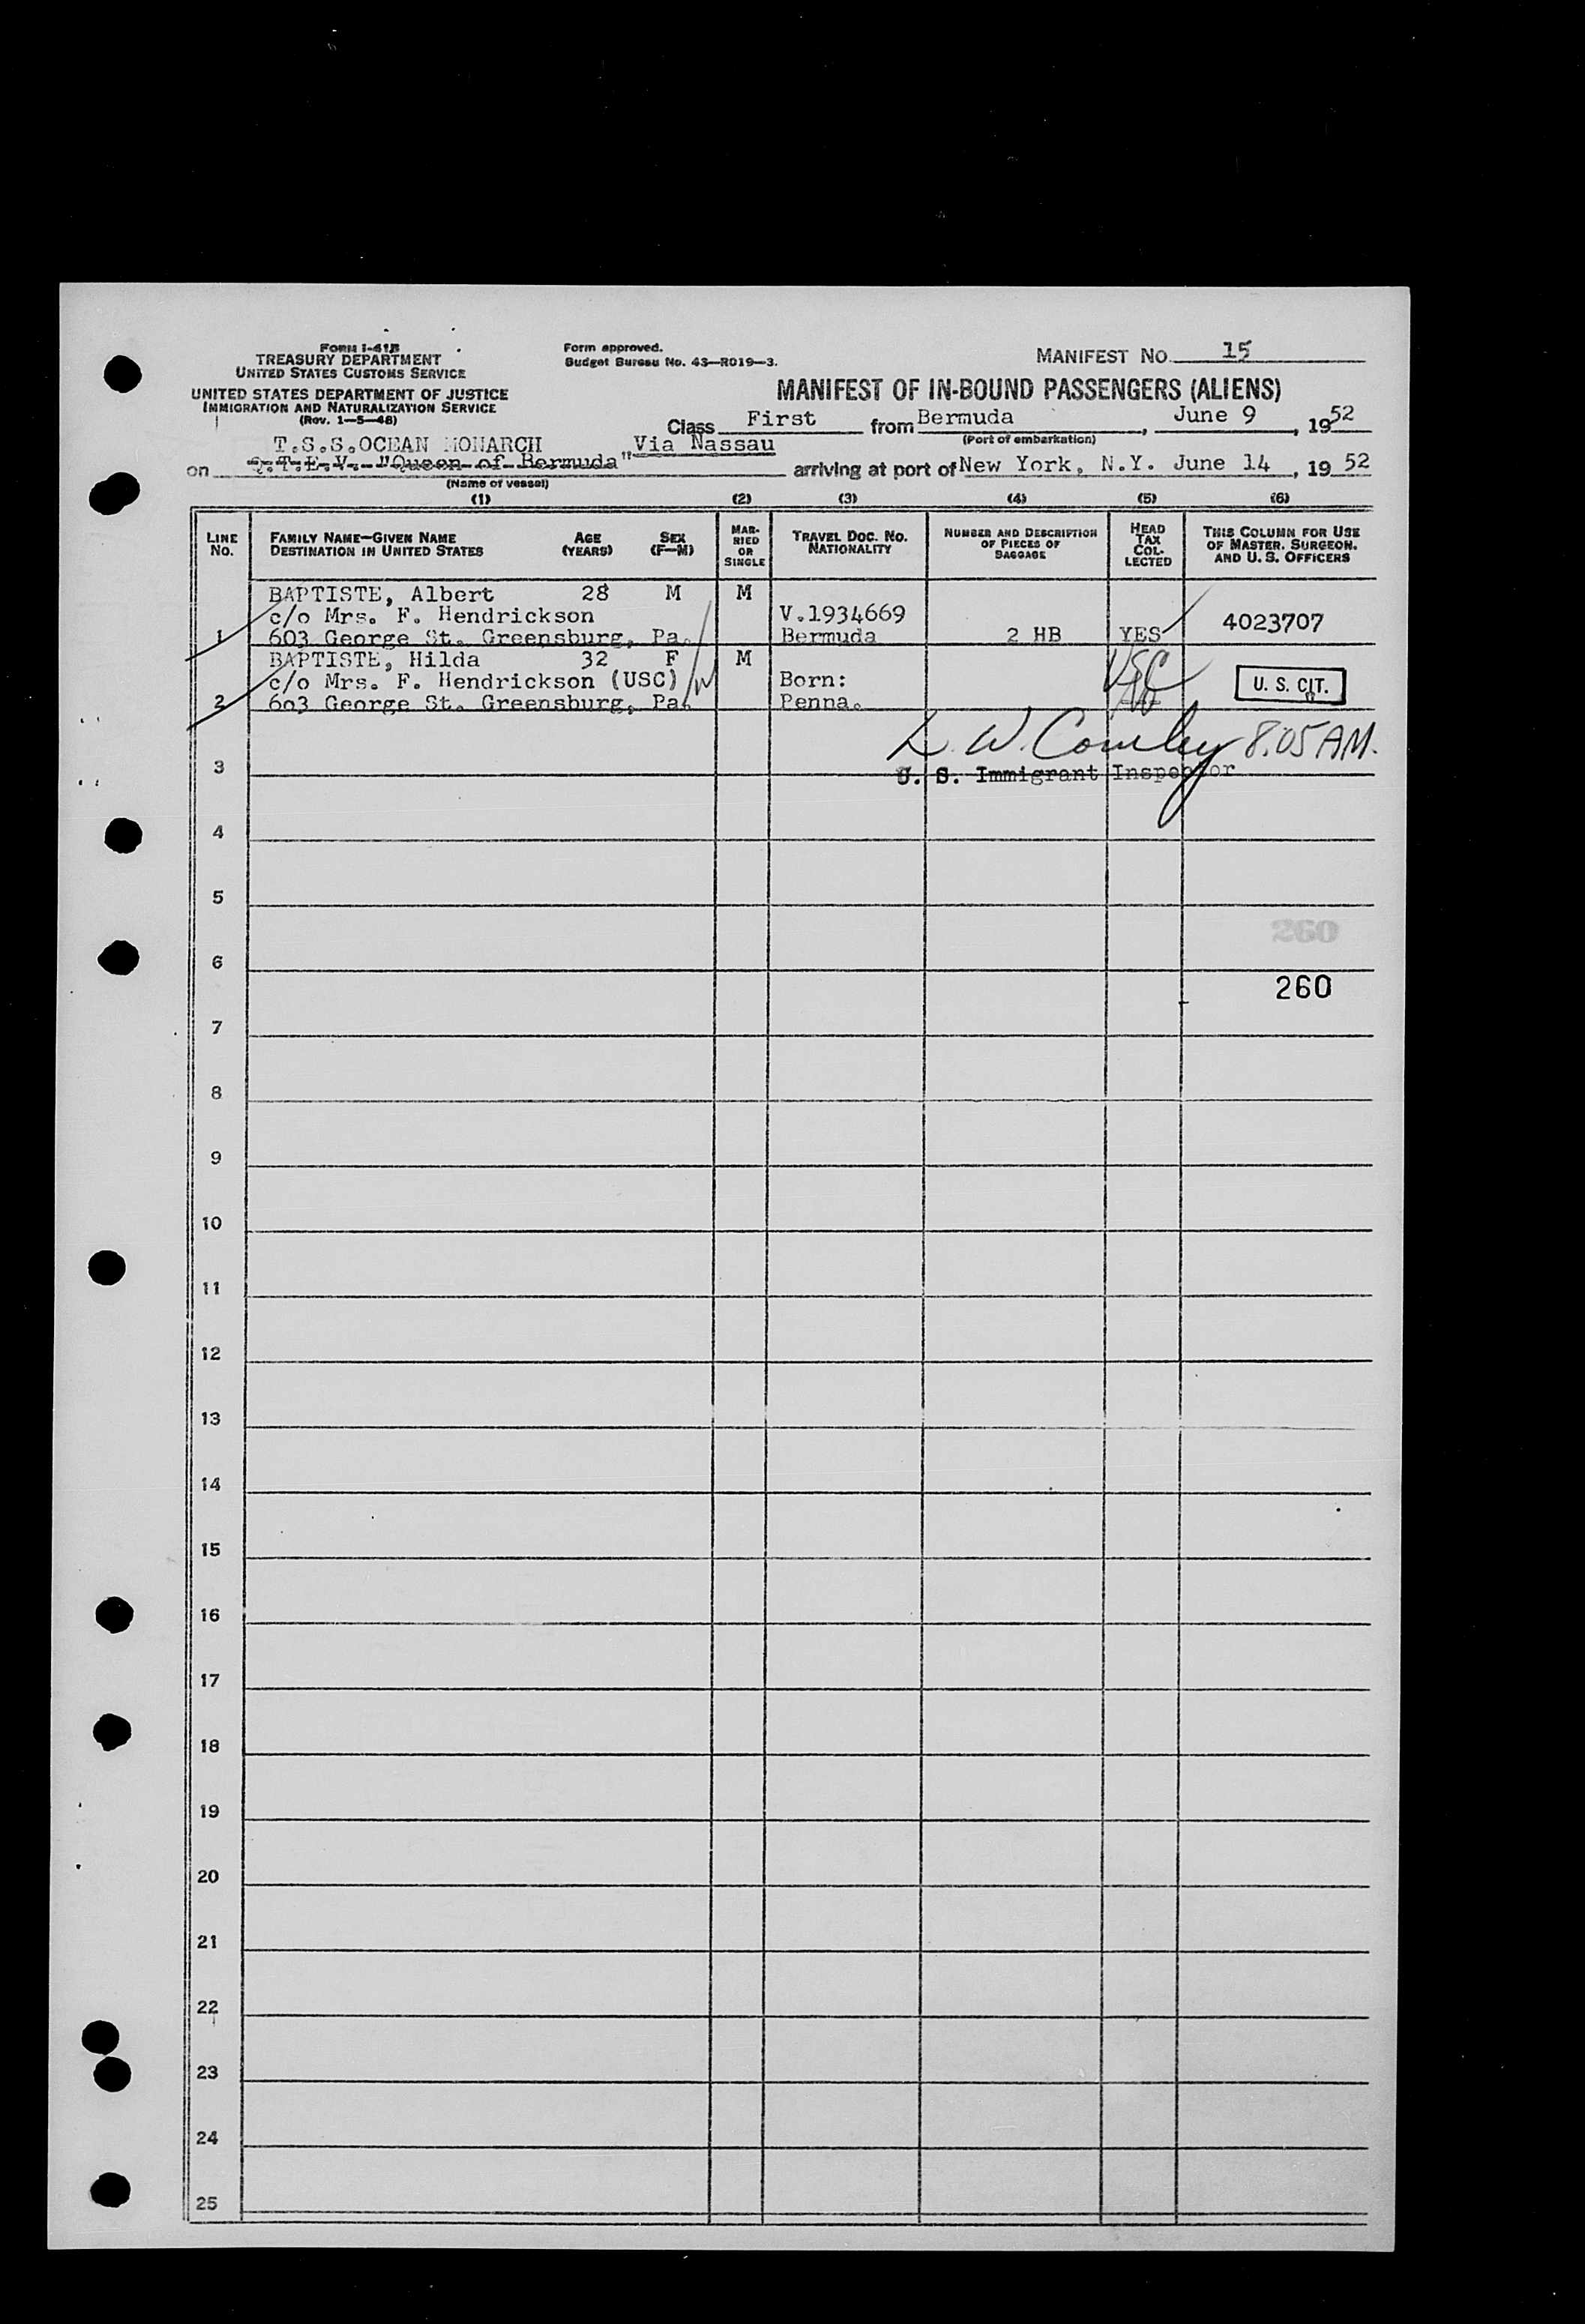 FORM I-41B
TREASURY DEPARTMENT
UNITED STATES CUSTOMS SERVICE
UNITED STATES DEPARTMENT OF JUSTICE
IMMIGRATION AND NATURALIZATION SERVICE
(Rev. 1—5—48)
Form approved.
Budget Bureau No. 43—R019—3.
MANIFEST NO. 15
MANIFEST OF IN-BOUND PASSENGERS (ALIENS)
Class First from Bermuda, June 9, 1952
(Port of embarkation)
T.S.S.OCEAN MONARCH Via Nassau
on Q.T.E.V. "Queen of Bermuda" arriving at port of New York, N.Y. June 14, 19 52
(Name of vessel)
(1) (2) (3) (4) (5) (6)
LINE NO.
FAMILY NAME—GIVEN NAME
DESTINATION IN UNITED STATES
AGE (YEARS)
SEX (F—M)
MAR-
RIED
OR
SINGLE
TRAVEL DOC. NO.
NATIONALITY
NUMBER AND DESCRIPTION
OF PIECES OF
BAGGAGE
HEAD
TAX
COL-
LECTED
THIS COLUMN FOR USE
OF MASTER, SURGEON,
AND U. S. OFFICERS
BAPTISTE, Albert 28 M M
c/o Mrs. F. Hendrickson V.1934669 4023707
1 603 George St. Greensburg, Pa. Bermuda 2 HB YES
BAPTISTE, Hilda 32 F M
c/o Mrs. F. Hendrickson (USC) Born: USC U. S. CIT.
2 603 George St. Greensburg, Pa. Penna.
8:05 AM.
3 U. S. Immigrant Inspector
4
5
260
6
260
7
8
9
10
11
12
13
14
15
16
17
18
19
20
21
22
23
24
25